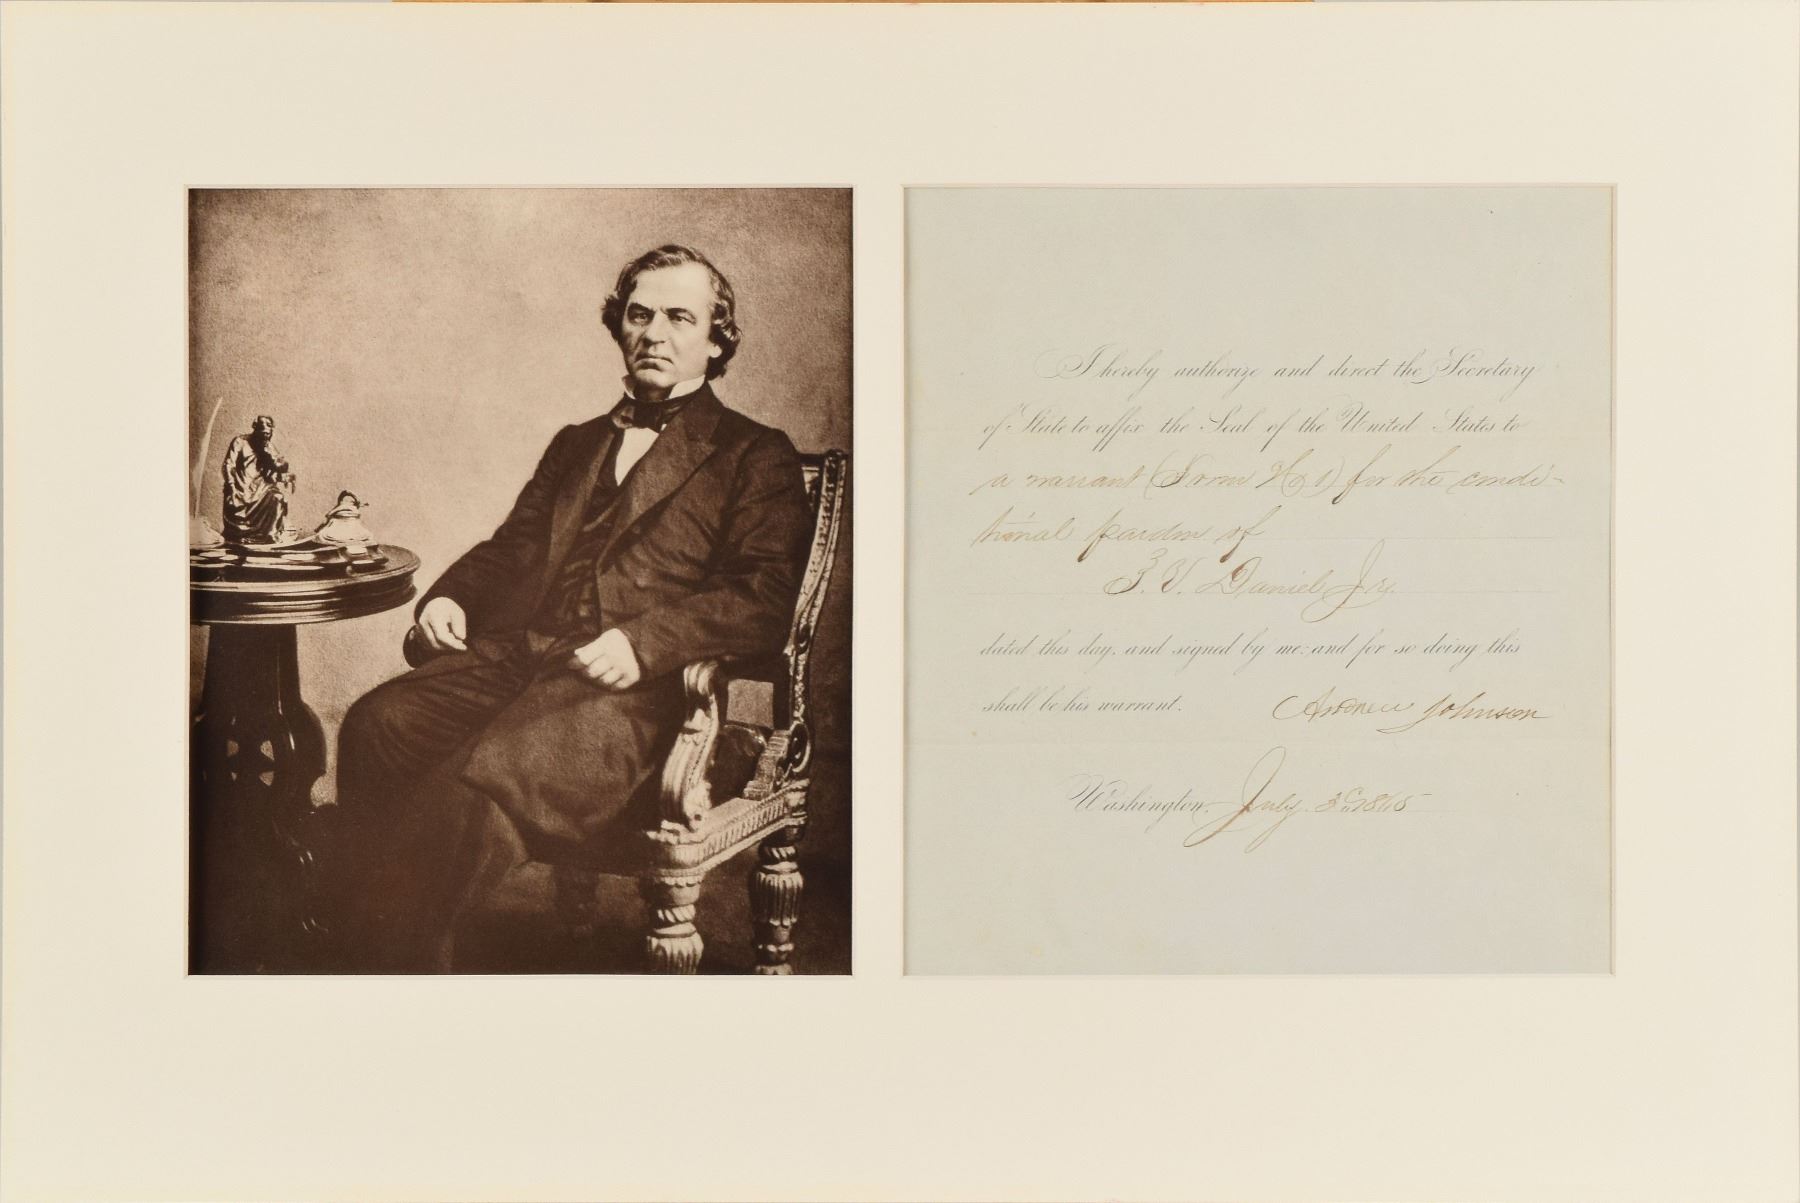 I hereby authorize and direct the Secretary
of State to affix the Seal of the United States to
a warrant (Form No 1) for the condi-
tional pardon of
P. V. Daniel Jr.
dated this day, and signed by me: and for so doing this
shall be his warrant. Andrew Johnson
Washington, July 3d, 1865